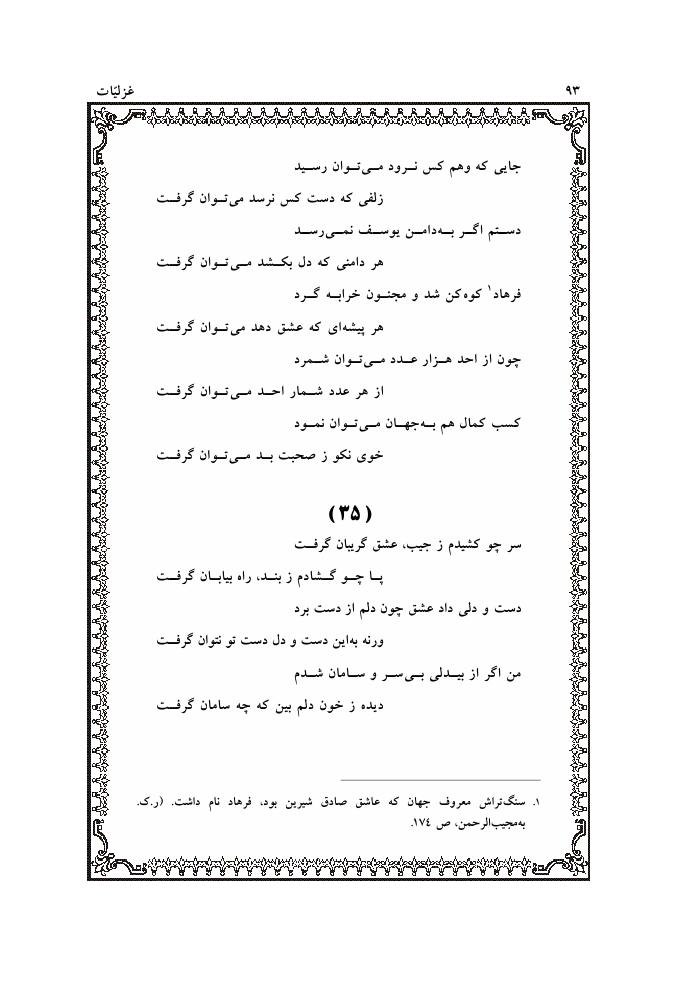 ۹۳ غزلیّات
جایی که وهم کس نرود می‌توان رسید
زلفی که دست کس نرسد می‌توان گرفت
دستم اگر به‌دامن یوسف نمی‌رسد
هر دامنی که دل بکشد می‌توان گرفت
فرهاد۱ کوه‌کن شد و مجنون خرابه گرد
هر پیشه‌ای که عشق دهد می‌توان گرفت
چون از احد هزار عدد می‌توان شمرد
از هر عدد شمار احد می‌توان گرفت
کسب کمال هم به‌جهان می‌توان نمود
خوی نکو ز صحبت بد می‌توان گرفت
(۳۵)
سر چو کشیدم ز جیب، عشق گریبان گرفت
پا چو گشادم ز بند، راه بیابان گرفت
دست و دلی داد عشق چون دلم از دست برد
ورنه به‌این دست و دل دست تو نتوان گرفت
من اگر از بیدلی بی‌سر و سامان شدم
دیده ز خون دلم بین که چه سامان گرفت
۱. سنگ‌تراش معروف جهان که عاشق صادق شیرین بود، فرهاد نام داشت. (ر.ک.
به‌مجیب‌الرحمن، ص ۱۷۴.